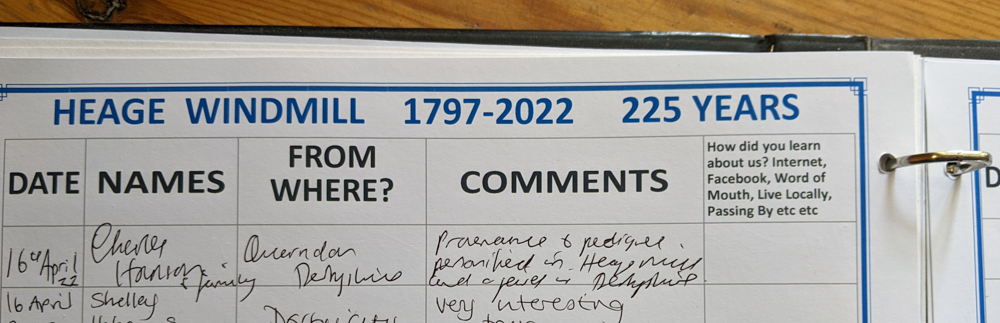 HEAGE WINDMILL 1797-2022 225 YEARS
DATE
NAMES
FROM
WHERE?
COMMENTS
How did you learn
about us? Internet,
Facebook, Word of
Mouth, Live Locally,
Passing By etc etc
D
16th April
22
& family
Quarndon
Derbyshire
Provenance & pedigree
personified in Heage Mill
and a jewel in Derbyshire.
16 April
Shelley
Derby City
very interesting